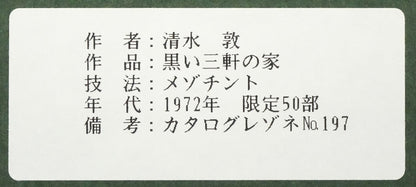 作　者：清水　敦
作　品：黒い三軒の家
技　法：メゾチント
年　代：1972年　限定50部
備　考：カタログレゾネ№197